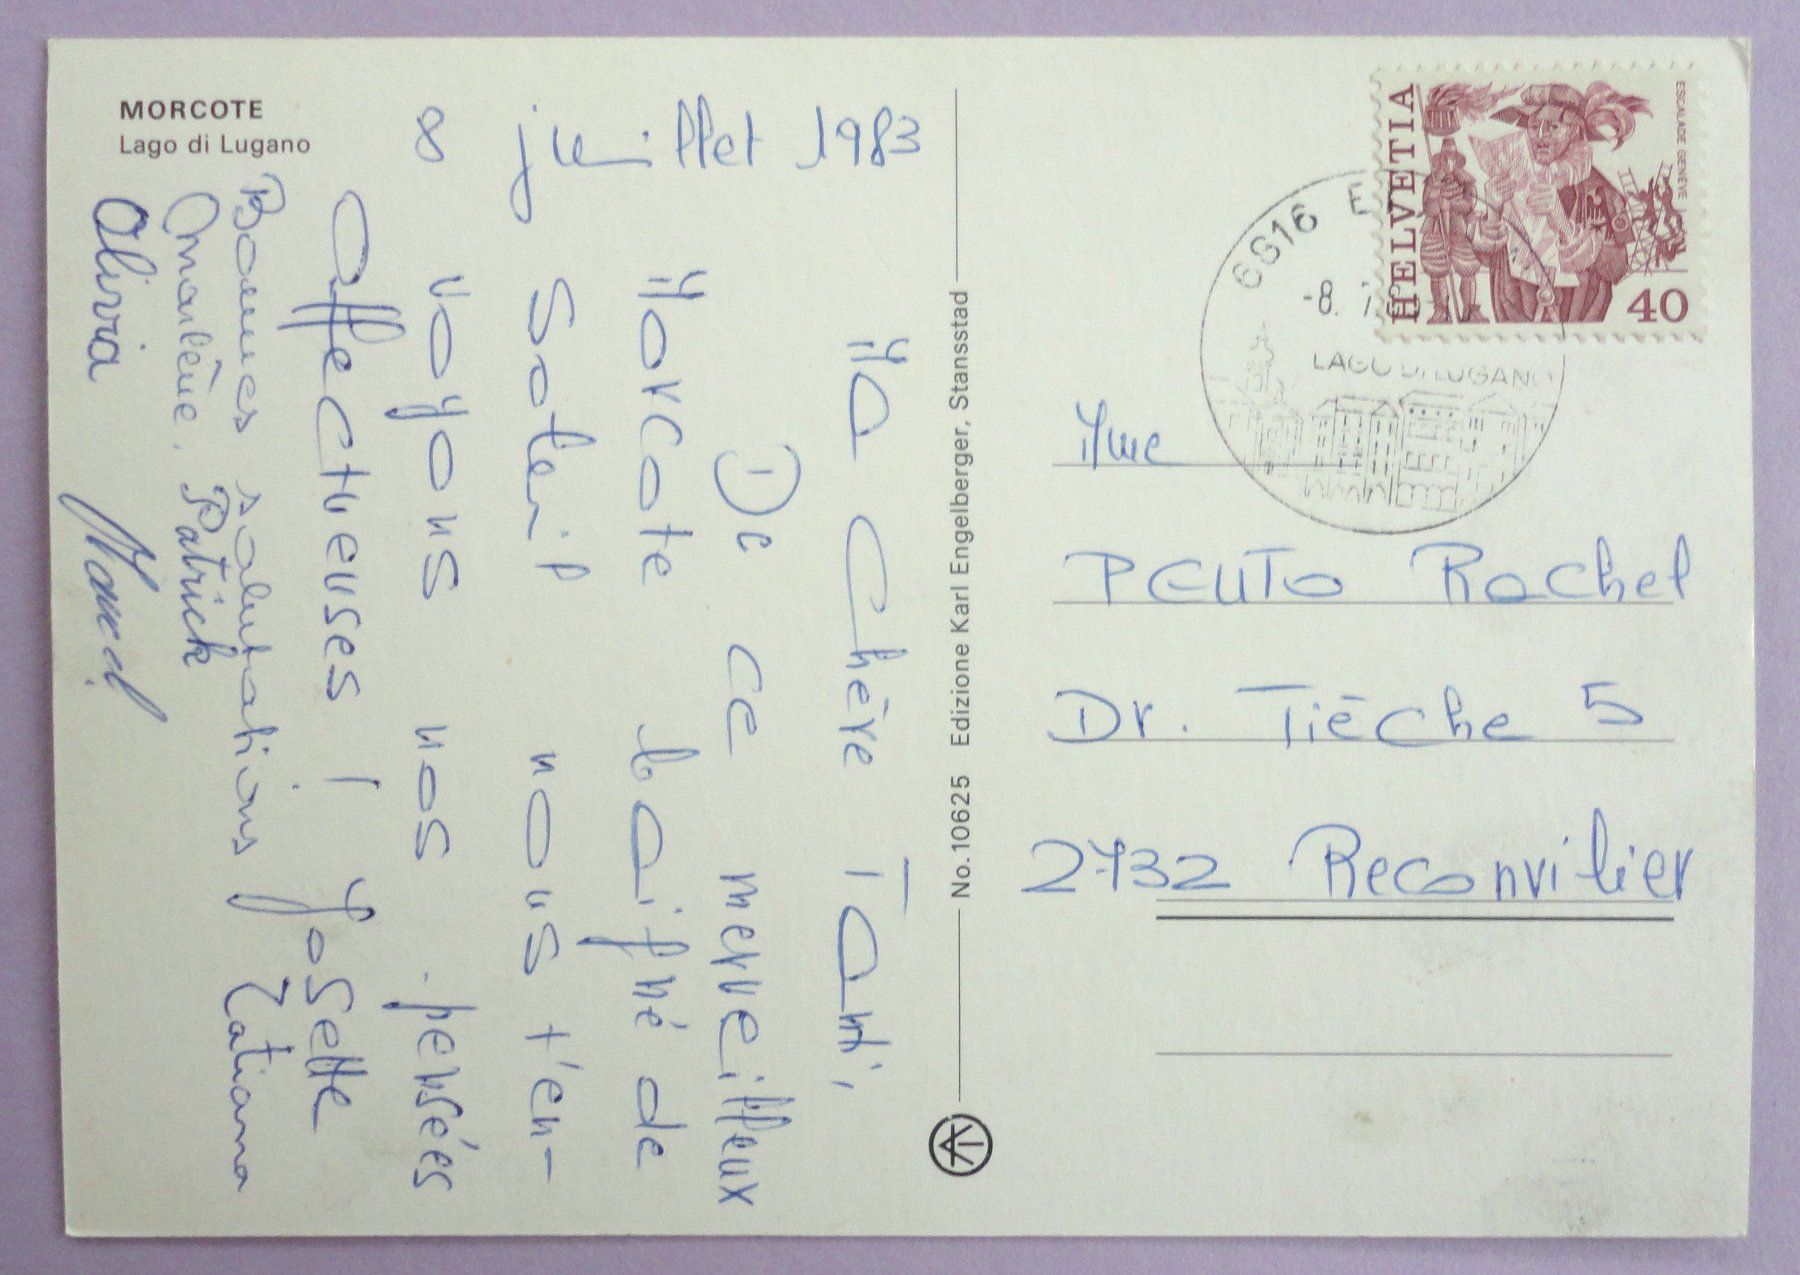 MORCOTE
Lago di Lugano
8 juillet 1983
Ma Chère Tanti,
De ce merveilleux
Morcote baigné de
soleil nous t'en-
voyons nos pensées
affectueuses ! Yosette
Bonnes salutations Tatiana
Marlène. Patrick
Olivia Marcel
No. 10625 Edizione Karl Engelberger, Stansstad
HELVETIA
ESCALADE GENÈVE
40
6816
-8. 7.
LAGO DI LUGANO
Mme
PEUTO Rachel
Dr. Tièche 5
2732 Reconvilier